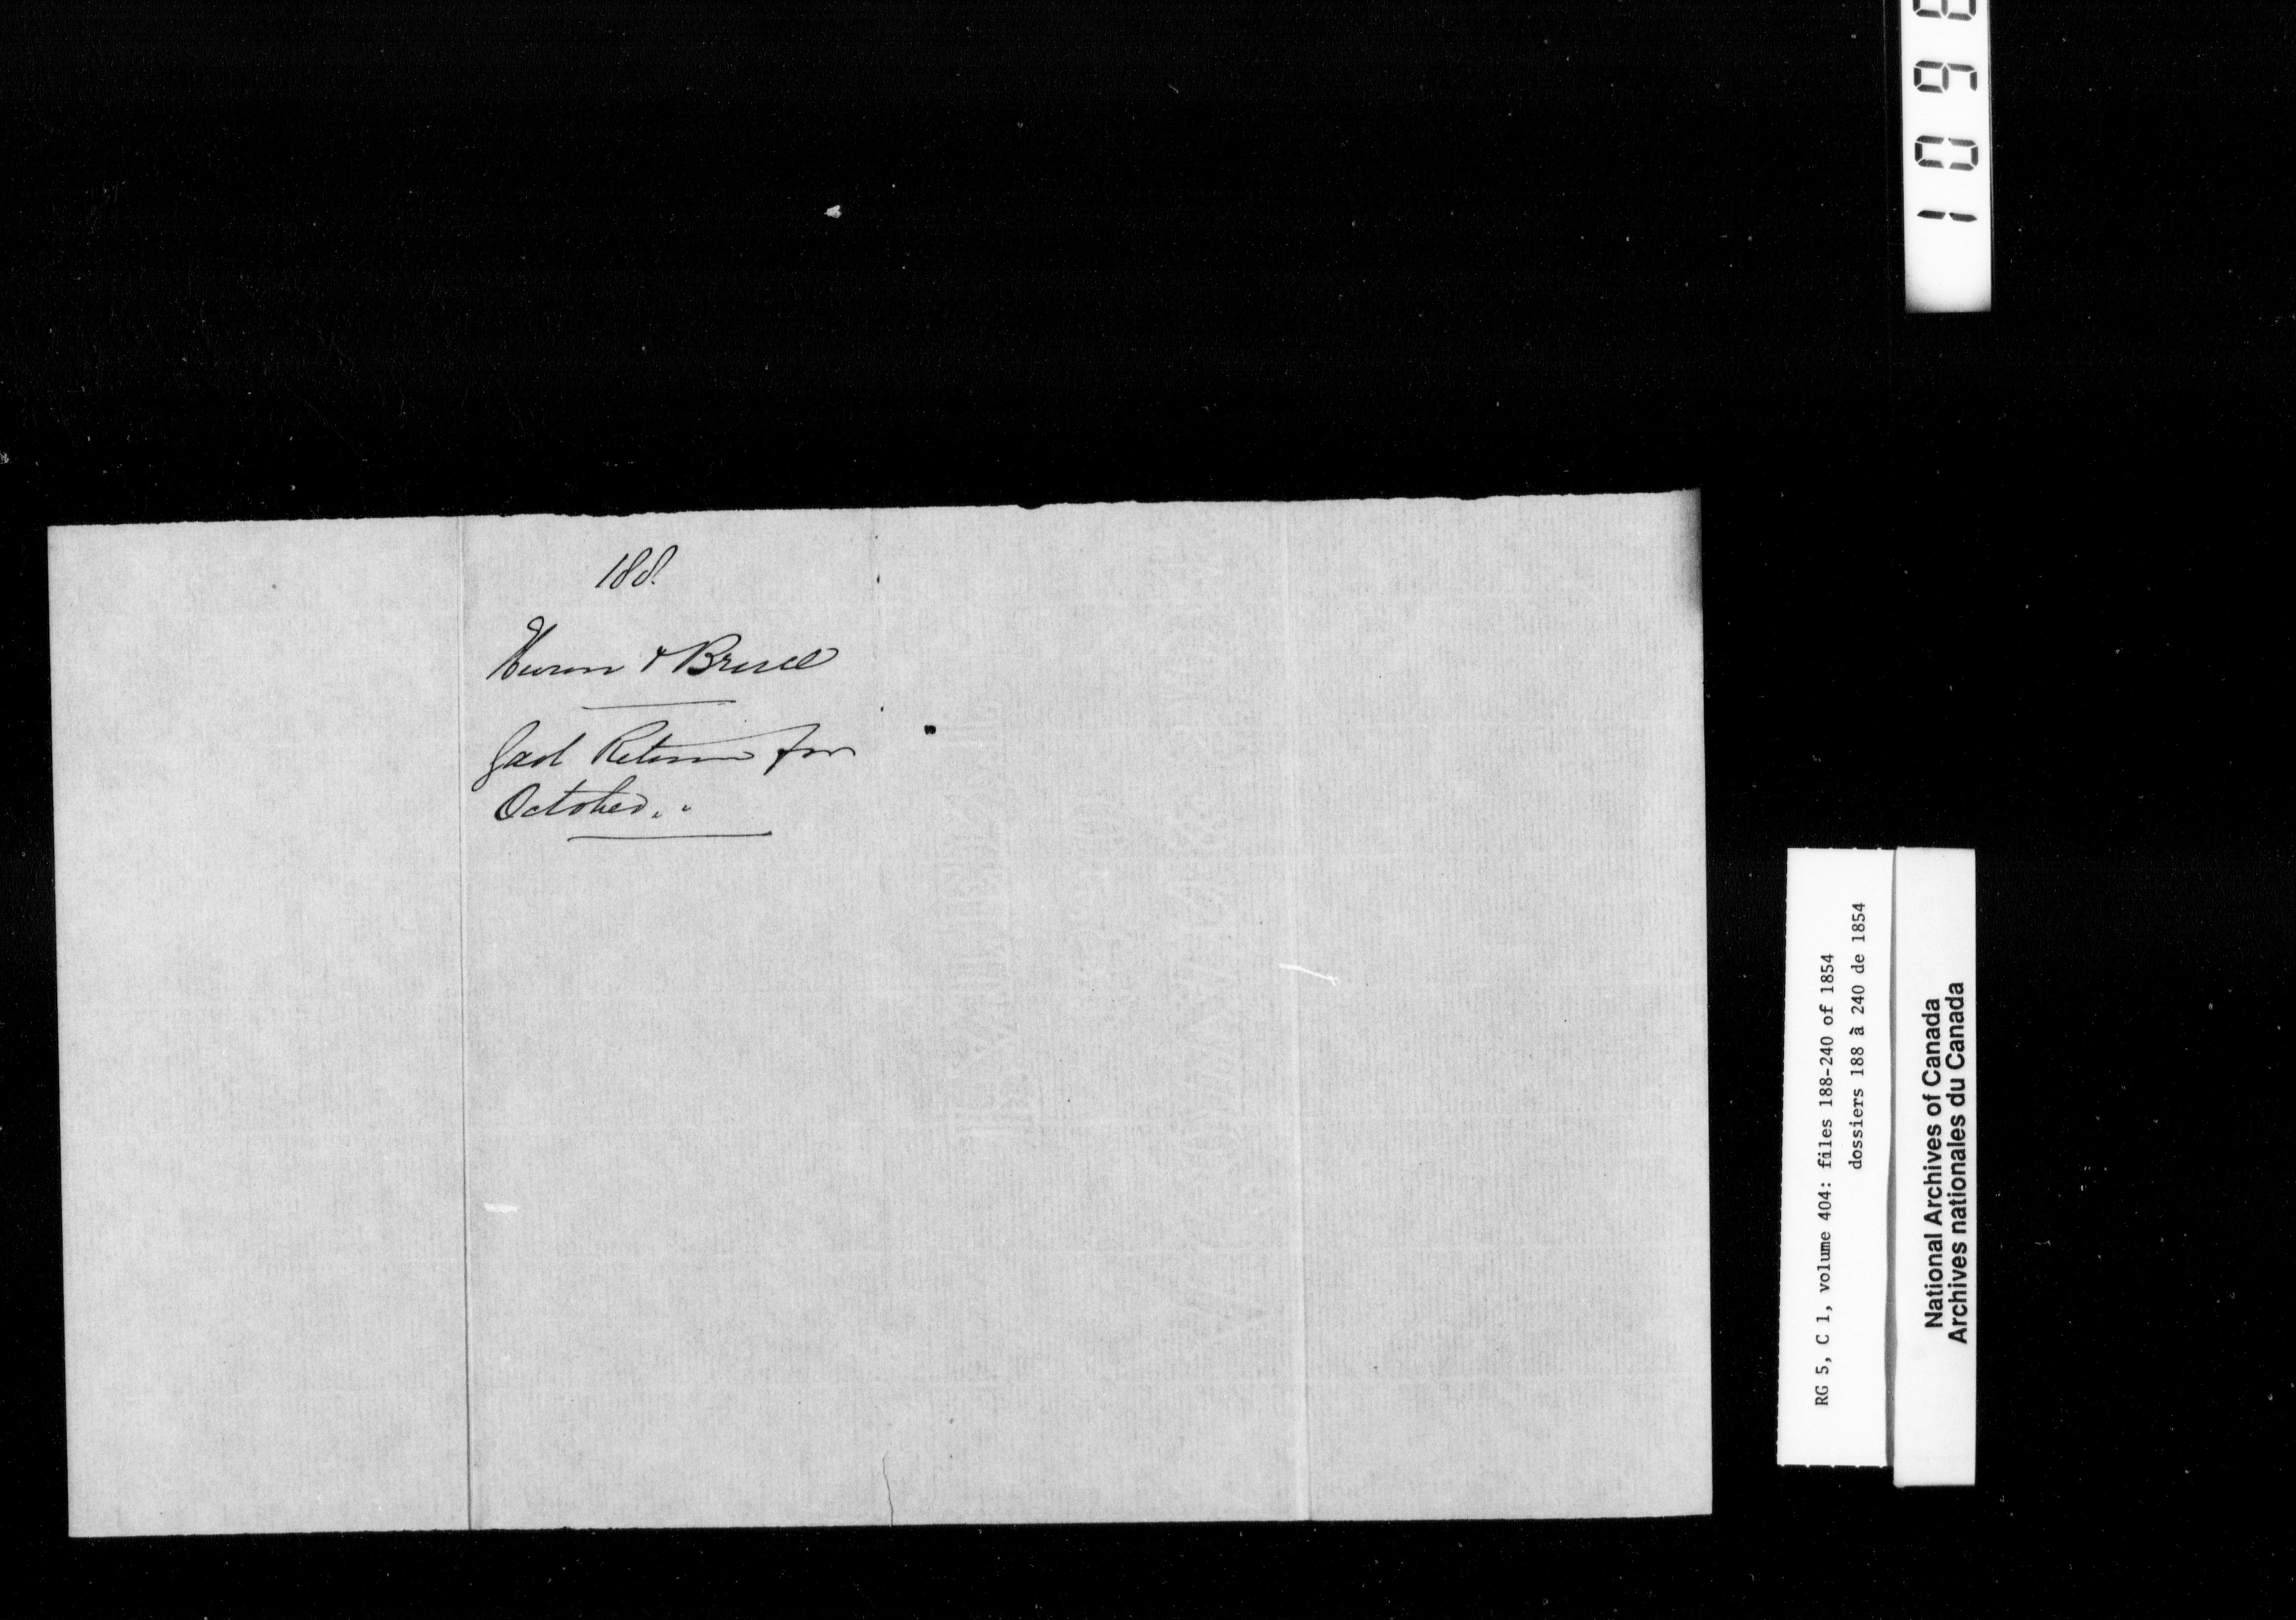 188.
Huron & Bruce
Gaol Return for
October.
RG 5, C 1, volume 404: files 188-240 of 1854
dossiers 188 à 240 de 1854
National Archives of Canada
Archives nationales du Canada